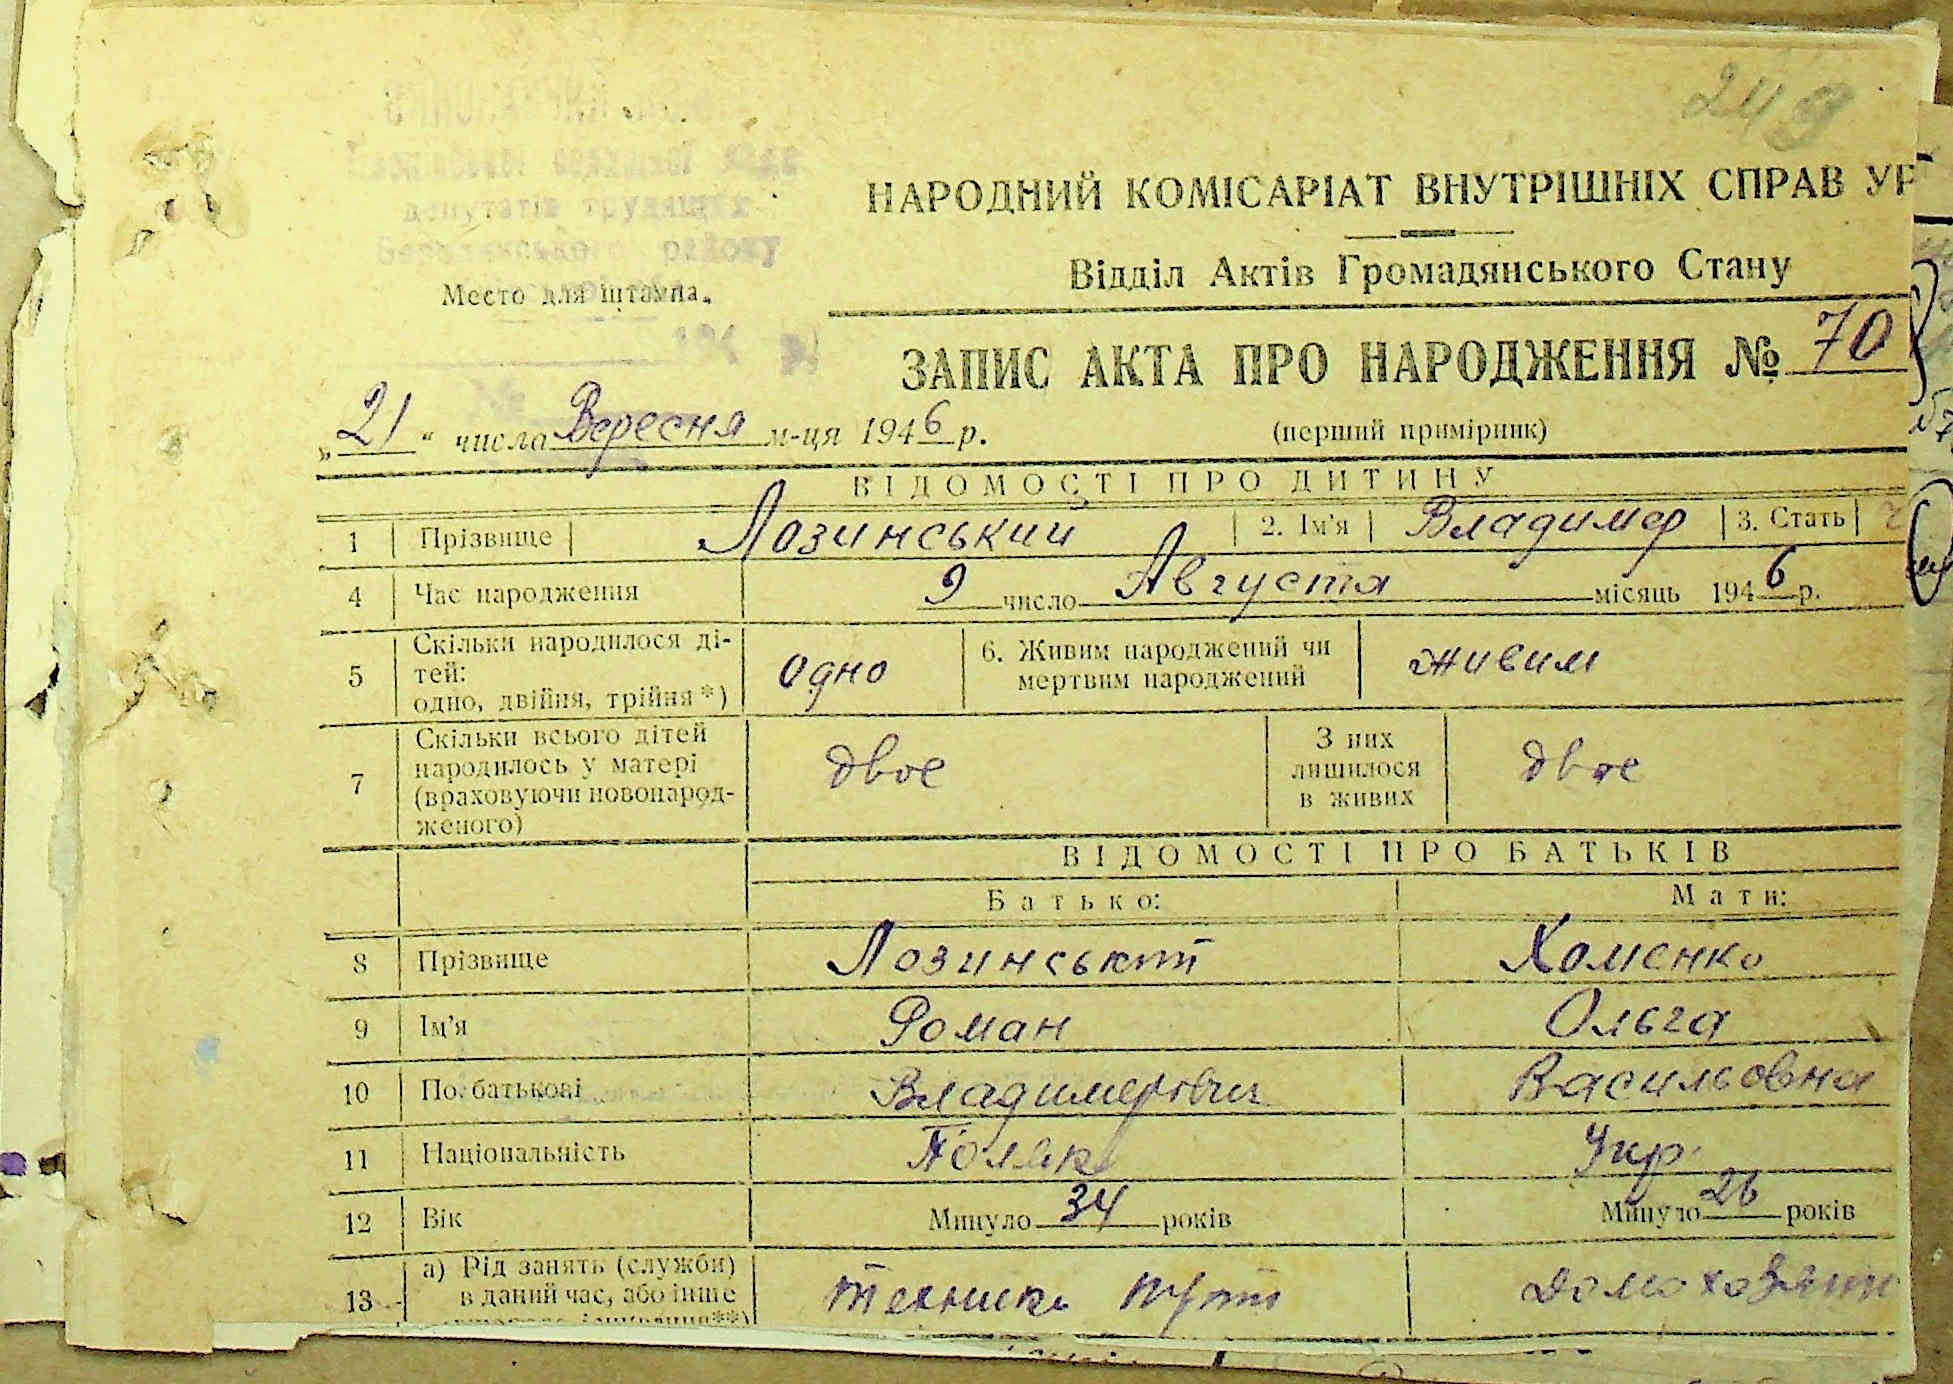 депутатів трудящих
району
Место для штампа.
НАРОДНИЙ КОМІСАРІАТ ВНУТРІШНІХ СПРАВ УР
Відділ Актів Громадянського Стану
ЗАПИС АКТА ПРО НАРОДЖЕННЯ № 70
„21“ числа Вересня м-ця 1946 р.
(перший примірник)
ВІДОМОСТІ ПРО ДИТИНУ
1 Прізвище Лозинський 2. Ім'я Владимер 3. Стать
4 Час народження 9 число Августа місяць 1946 р.
5 Скільки народилося ді-
тей:
одно, двійня, трійня*) одно 6. Живим народжений чи
мертвим народжений живим
7 Скільки всього дітей
народилось у матері
(враховуючи новонарод-
женого) двое З них
лишилося
в живих двое
ВІДОМОСТІ ПРО БАТЬКІВ
Батько: Мати:
8 Прізвище Лозинський Хоменко
9 Ім'я Роман Ольга
10 По батькові Владимерович Васильовна
11 Національність Поляк Укр.
12 Вік Минуло 34 років Минуло 26 років
13 а) Рід занять (служби)
в даний час, або інше
техник